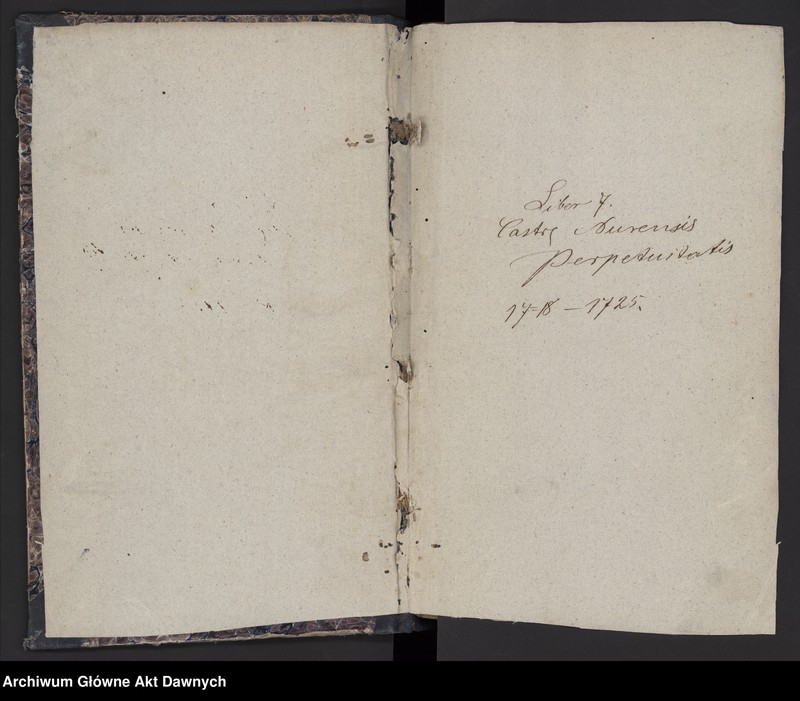 Liber 7.
Castre Nurensis
Perpetuitatis
1718 – 1725.
Archiwum Główne Akt Dawnych